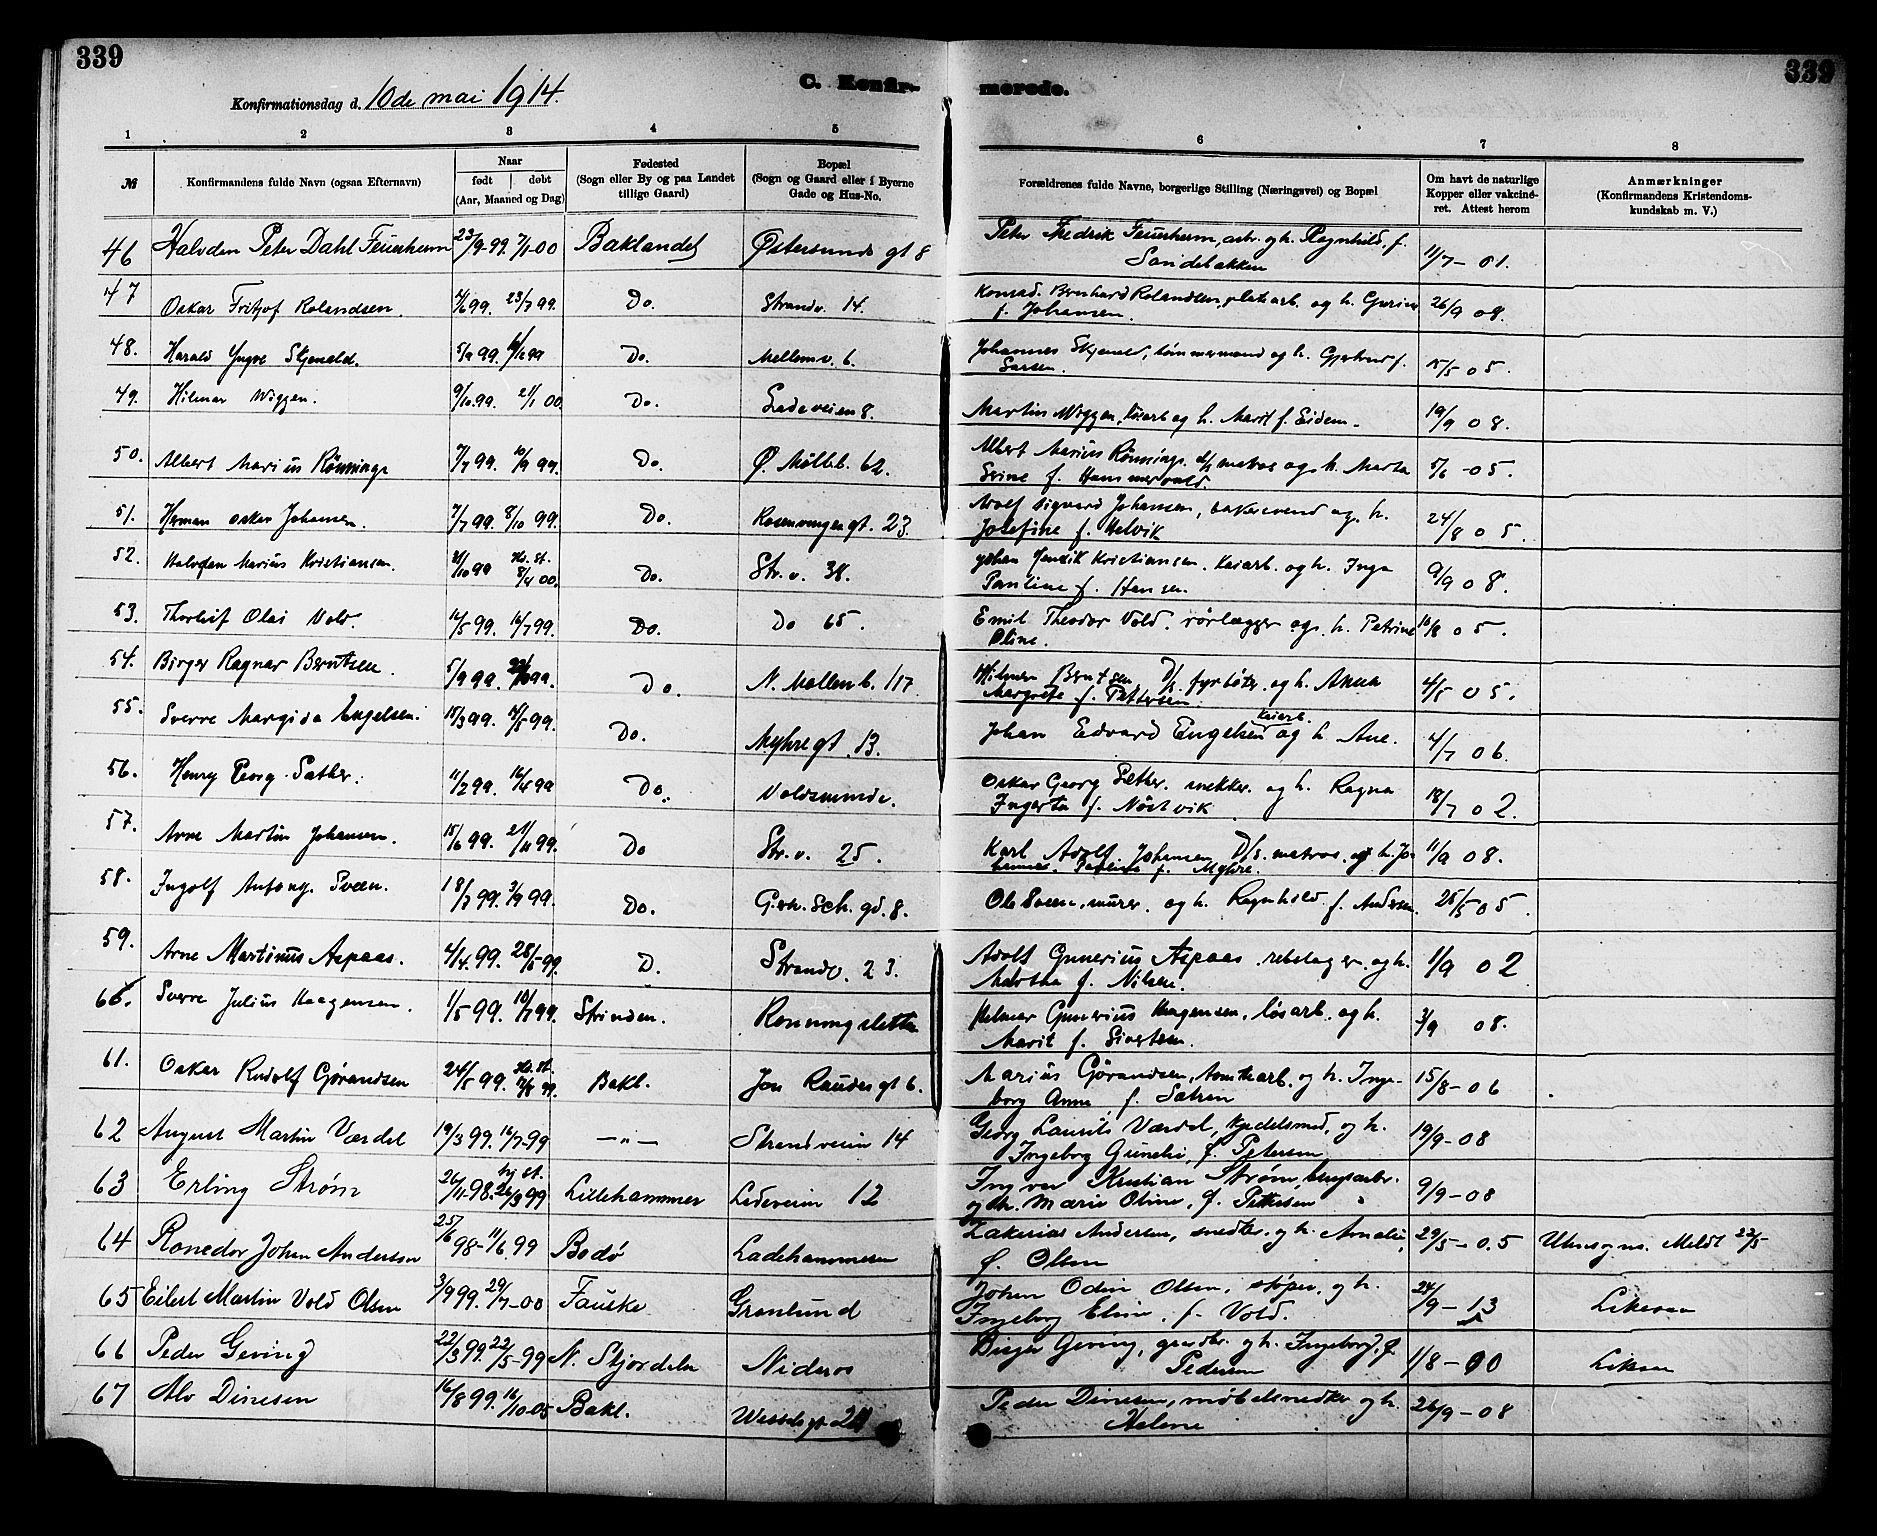 339
339
C. Konfir- merede.
Konfirmationsdag d. 10de mai 1914.
1 2 3 4 5 6 7 8
№
Konfirmandens fulde Navn (ogsaa Efternavn)
Naar
født døbt
(Aar, Maaned og Dag)
Fødested
(Sogn eller By og paa Landet
tillige Gaard)
Bopæl
(Sogn og Gaard eller i Byerne
Gade og Hus-No.
Forældrenes fulde Navne, borgerlige Stilling (Næringsvei) og Bopæl
Om havt de naturlige
Kopper eller vakcine-
ret. Attest herom
Anmærkninger
(Konfirmandens Kristendoms-
kundskab m. V.)
46 Halvden Peter Dahl Feuerherm 23/9-99. 7/1-00 Baklandet Østersunds gt 8 Peter Fredrik Feuerherm, arb. og h. Ragnhild, f. 11/7-01.
Sandebakken
47 Oskar Fritjof Rolandsen. 4/6 99. 23/7 99. Do. Strandv. 14. Konrad Bernhard Rolandsen, platearb. og h. Gurine 26/9 08.
f. Johansen.
48. Harald Yngve Skjenald. 5/9 99. Do. Mellemv. 6. Johannes Skjenald, tømmermand og h. Gjertrud f. 15/5 05.
Larsen.
49. Hilmar Wiggen. 9/10.99. 21/1 00. Do. Ladeveien 8. Martin Wiggen, løsarb og h. Marit f. Eidem. 19/9 08.
50. Albert Marius Rønnings 7/7 99. 10/9 99. Do. Ø. Mølleb. 62. Albert Marius Rønnings. d/s matros og h. Marta 5/6-05.
Serine f. Hammervold.
51. Herman Oskar Johansen. 7/7 99. 8/10 99. Do. Rosenvinges gt. 23. Adolf Sigvard Johansen, bakersvend og h. 24/8 05.
Josefine f. Helvik
52. Halvdan Marius Kristiansen. 21/10 99 Hv. st. 8/4 00. Do. Str. v. 38. Johan Hendrik Kristiansen. Keiarb. og h. Inga 9/9 08.
Pauline f. Hansen.
53. Thorleif Olai Vold. 12/5 99. 16/7 99. Do. Do 65. Emil Theodor Vold. rørlægger og h. Petrine 10/8 05.
Oline.
54. Birger Ragnar Berntsen. 5/9 99. Do. N. Møllenb. 117. Hilmer Berntsen D/s. fyrbøter. og h. Anna 4/5 05.
Margrete f. Pettersen.
55. Sverre Margido Engelsen. 15/3 99. 14/5 99. Do. Myhre gt. 13. Johan Edvard Engelsen keiarb. og h. Ane. 4/7 06.
56. Henry Georg Sæther. 11/2 99. 16/4 99 Do. Voldsminde. Oskar Georg Sæther. snekker. og h. Ragna 18/7 02.
Ingerta f. Nøstvik
57. Arne Martin Johansen. 15/6 99. 21/11 99. Do Str. v. 25. Karl Adolf Johansen D/s. matros. og h. Jo- 11/9 08.
hanna. Pauline f. Myhre.
58. Ingolf Antony. Sveen. 18/7 99. 3/9 99. Do. Gerh. Sch. gd. 8. Ole Sveen, murer. og h. Ragnhild f. Andersen. 25/5 05
59. Arne Martinus Aspaas. 4/4.99. 28/5-99 D. Strandv. 23. Adolf Gunerius Aspaas rebslager. og h. 1/9 02
Martha f. Nilsen.
60. Sverre Julius Haagensen. 1/5 99. 10/7 99. Strinden. Ronningsletta Helmer Gunerius Haagensen, løsarb. og h. 3/9 08.
Marit f. Sivertsen.
61. Oskar Rudolf Gørandsen 24/5 99. Bakl. Jon Raudes gt 6. Marius Gørandsen, tomtearb. og h. Inge- 15/8-06
borg Anna, f. Sæhren
62 August Martin Værdal 19/3 99. 16/7-99 —"— Strandveien 14 Georg Laurits Værdal, kjedelsmed, og h. 19/9-08
Ingeborg Gunelie, f. Petersen
63 Erling Strøm 26/11-98. hj. st. 26/3 99 Lillehammer Ladeveien 12 Ingvar Kristian Strøm, bryggarbr. 9/9-08
og h. Marie Oline, f. Pettersen
64 Ronedor Johan Andersen 25/6 98- 11/6 99 Bodø Ladehammeren Zakarias Andersen, snedker. og h. Amalie, 29/5-05 Utensogns. Meldt 23/5
f. Olsen
65 Eilert Martin Vold Olsen 3/9 99. 29/7-00 Fauske Grønlund Johan Odin Olsen, støper, og h. 24/9-13 Likesaa
Ingeborg Eline, f. Vold.
66 Peder Geving 22/3 99. 22/5-99 N. Stjørdalen Nidaros Birger Geving, grdbr. og h. Ingeborg, f. 1/8-00 Likesaa
Pedersen
67 Alv Dinesen 16/8 99. 16/10-05 Bakl. Wessels gt 20 Peder Dinesen, møbelsnedker og h. 26/9-08
Helene